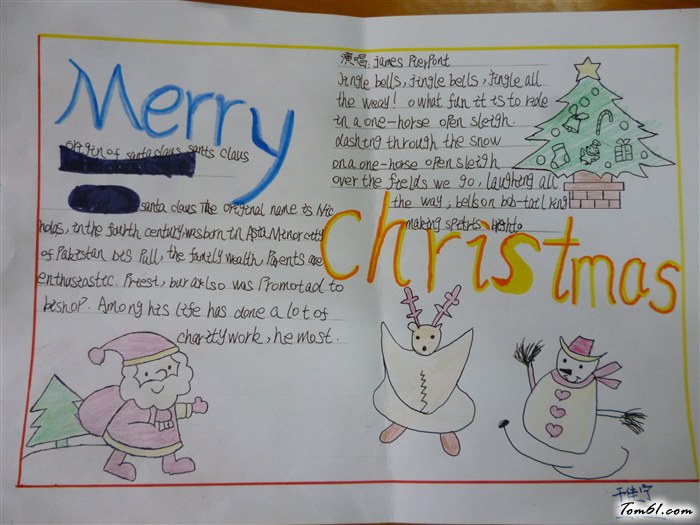 Merry
origin of santa claus santa claus
santa claus The original name is Nic
holas, in the fourth century was born in Asia Minor city
of Pakistan bis Pull, the family wealth, Parents are
enthusiastic. Priest, but also was Promotad to
bishop. Among his life has done a lot of
charity work, he most.
演唱: James Pierpont
Jingle bells, jingle bells, jingle all
the weay! o what fun it is to ride
in a one-horse open sleigh.
dashing through the snow
on a one-horse open sleigh
over the fields we go, laughing all
the way, bells on bob-tail ring
making spirits bright.
Christmas
于佳宁
Tom61.com